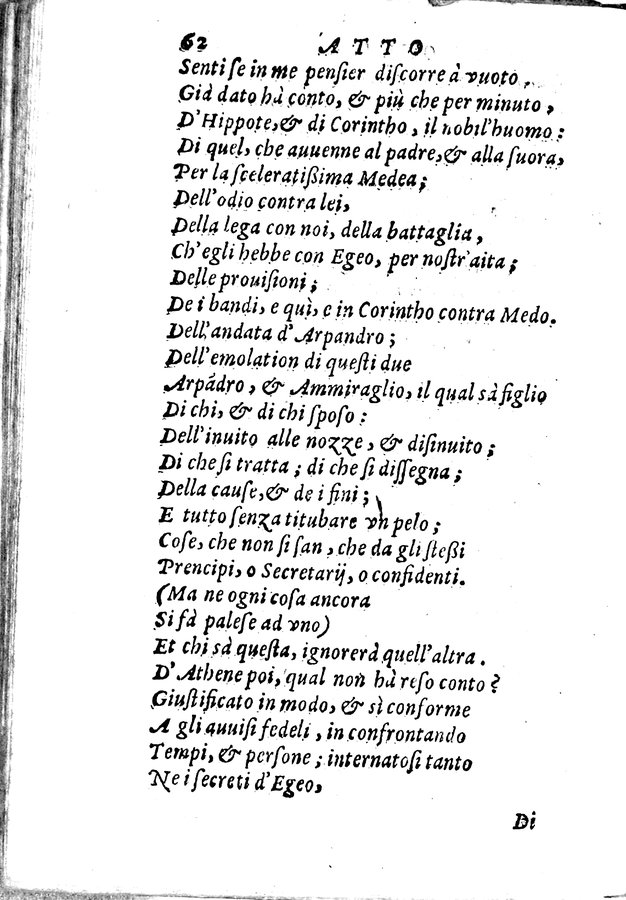 62 ATTO
Senti se in me pensier discorre à vuoto.
Già dato hà conto, & più che per minuto,
D'Hippote, & di Corintho, il nobil'huomo:
Di quel, che auuenne al padre, & alla suora,
Per la sceleratißima Medea;
Dell'odio contra lei,
Della lega con noi, della battaglia,
Ch'egli hebbe con Egeo, per nostr'aita;
Delle prouisioni;
De i bandi, e quì, e in Corintho contra Medo.
Dell'andata d'Arpandro;
Dell'emolation di questi due
Arpãdro, & Ammiraglio, il qual sà figlio
Di chi, & di chi sposo:
Dell'inuito alle nozze, & disinuito;
Di che si tratta; di che si dissegna;
Della cause, & de i fini;
E tutto senza titubare vn pelo;
Cose, che non si san, che da gli steßi
Prencipi, o Secretarij, o confidenti.
(Ma ne ogni cosa ancora
Si fà palese ad vno)
Et chi sà questa, ignorerà quell'altra.
D'Athene poi, qual non hà reso conto?
Giustificato in modo, & sì conforme
A gli auuisi fedeli, in confrontando
Tempi, & persone; internatosi tanto
Ne i secreti d'Egeo,
Di